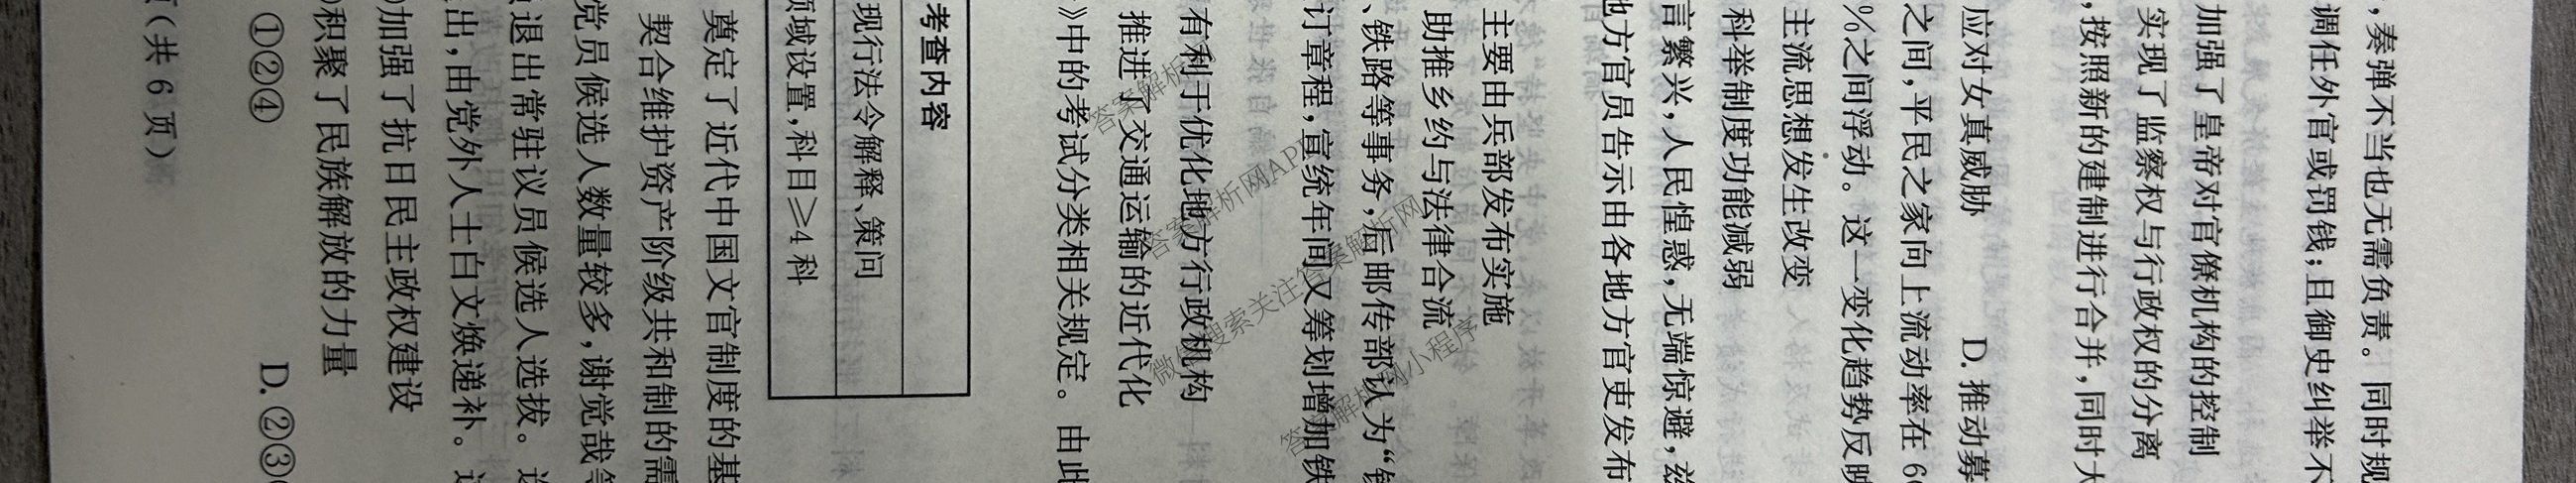 ，奏弹不当也无需负责。同时规
调任外官或罚钱；且御史纠举不
加强了皇帝对官僚机构的控制
实现了监察权与行政权的分离
，按照新的建制进行合并，同时大
应对女真威胁 D. 推动募
之间，平民之家向上流动率在6
%之间浮动。这一变化趋势反映
主流思想发生改变
科举制度功能减弱
言繁兴，人民惶惑，无端惊避，兹
地方官员告示由各地方官吏发布
主要由兵部发布实施
助推乡约与法律合流
、铁路等事务，后邮传部认为“
订章程，宣统年间又筹划增加铁
有利于优化地方行政机构
推进了交通运输的近代化
》中的考试分类相关规定。由此
考查内容
现行法令解释、策问
领域设置，科目≥4科
奠定了近代中国文官制度的基
契合维护资产阶级共和制的需
党员候选人数量较多，谢觉哉等
退出常驻议员候选人选拔。
出，由党外人士白文焕递补。
加强了抗日民主政权建设
积聚了民族解放的力量
①②④ D. ②③
（共 6 页）
答案解析
答案解析网APP
微信搜索关注答案解析网
答案解析网小程序